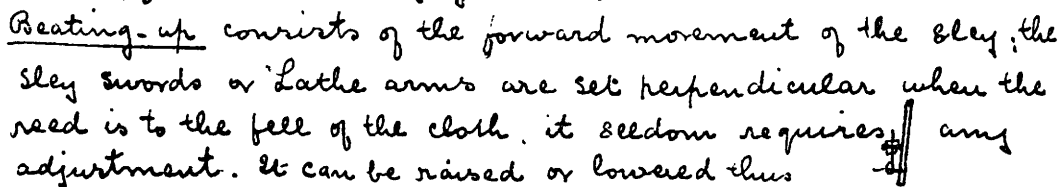 Beating-up consists of the forward movement of the sley; the
sley swords or Lathe arms are set perpendicular when the
reed is to the fell of the cloth. it seldom requires any
adjustment. It can be raised or lowered thus